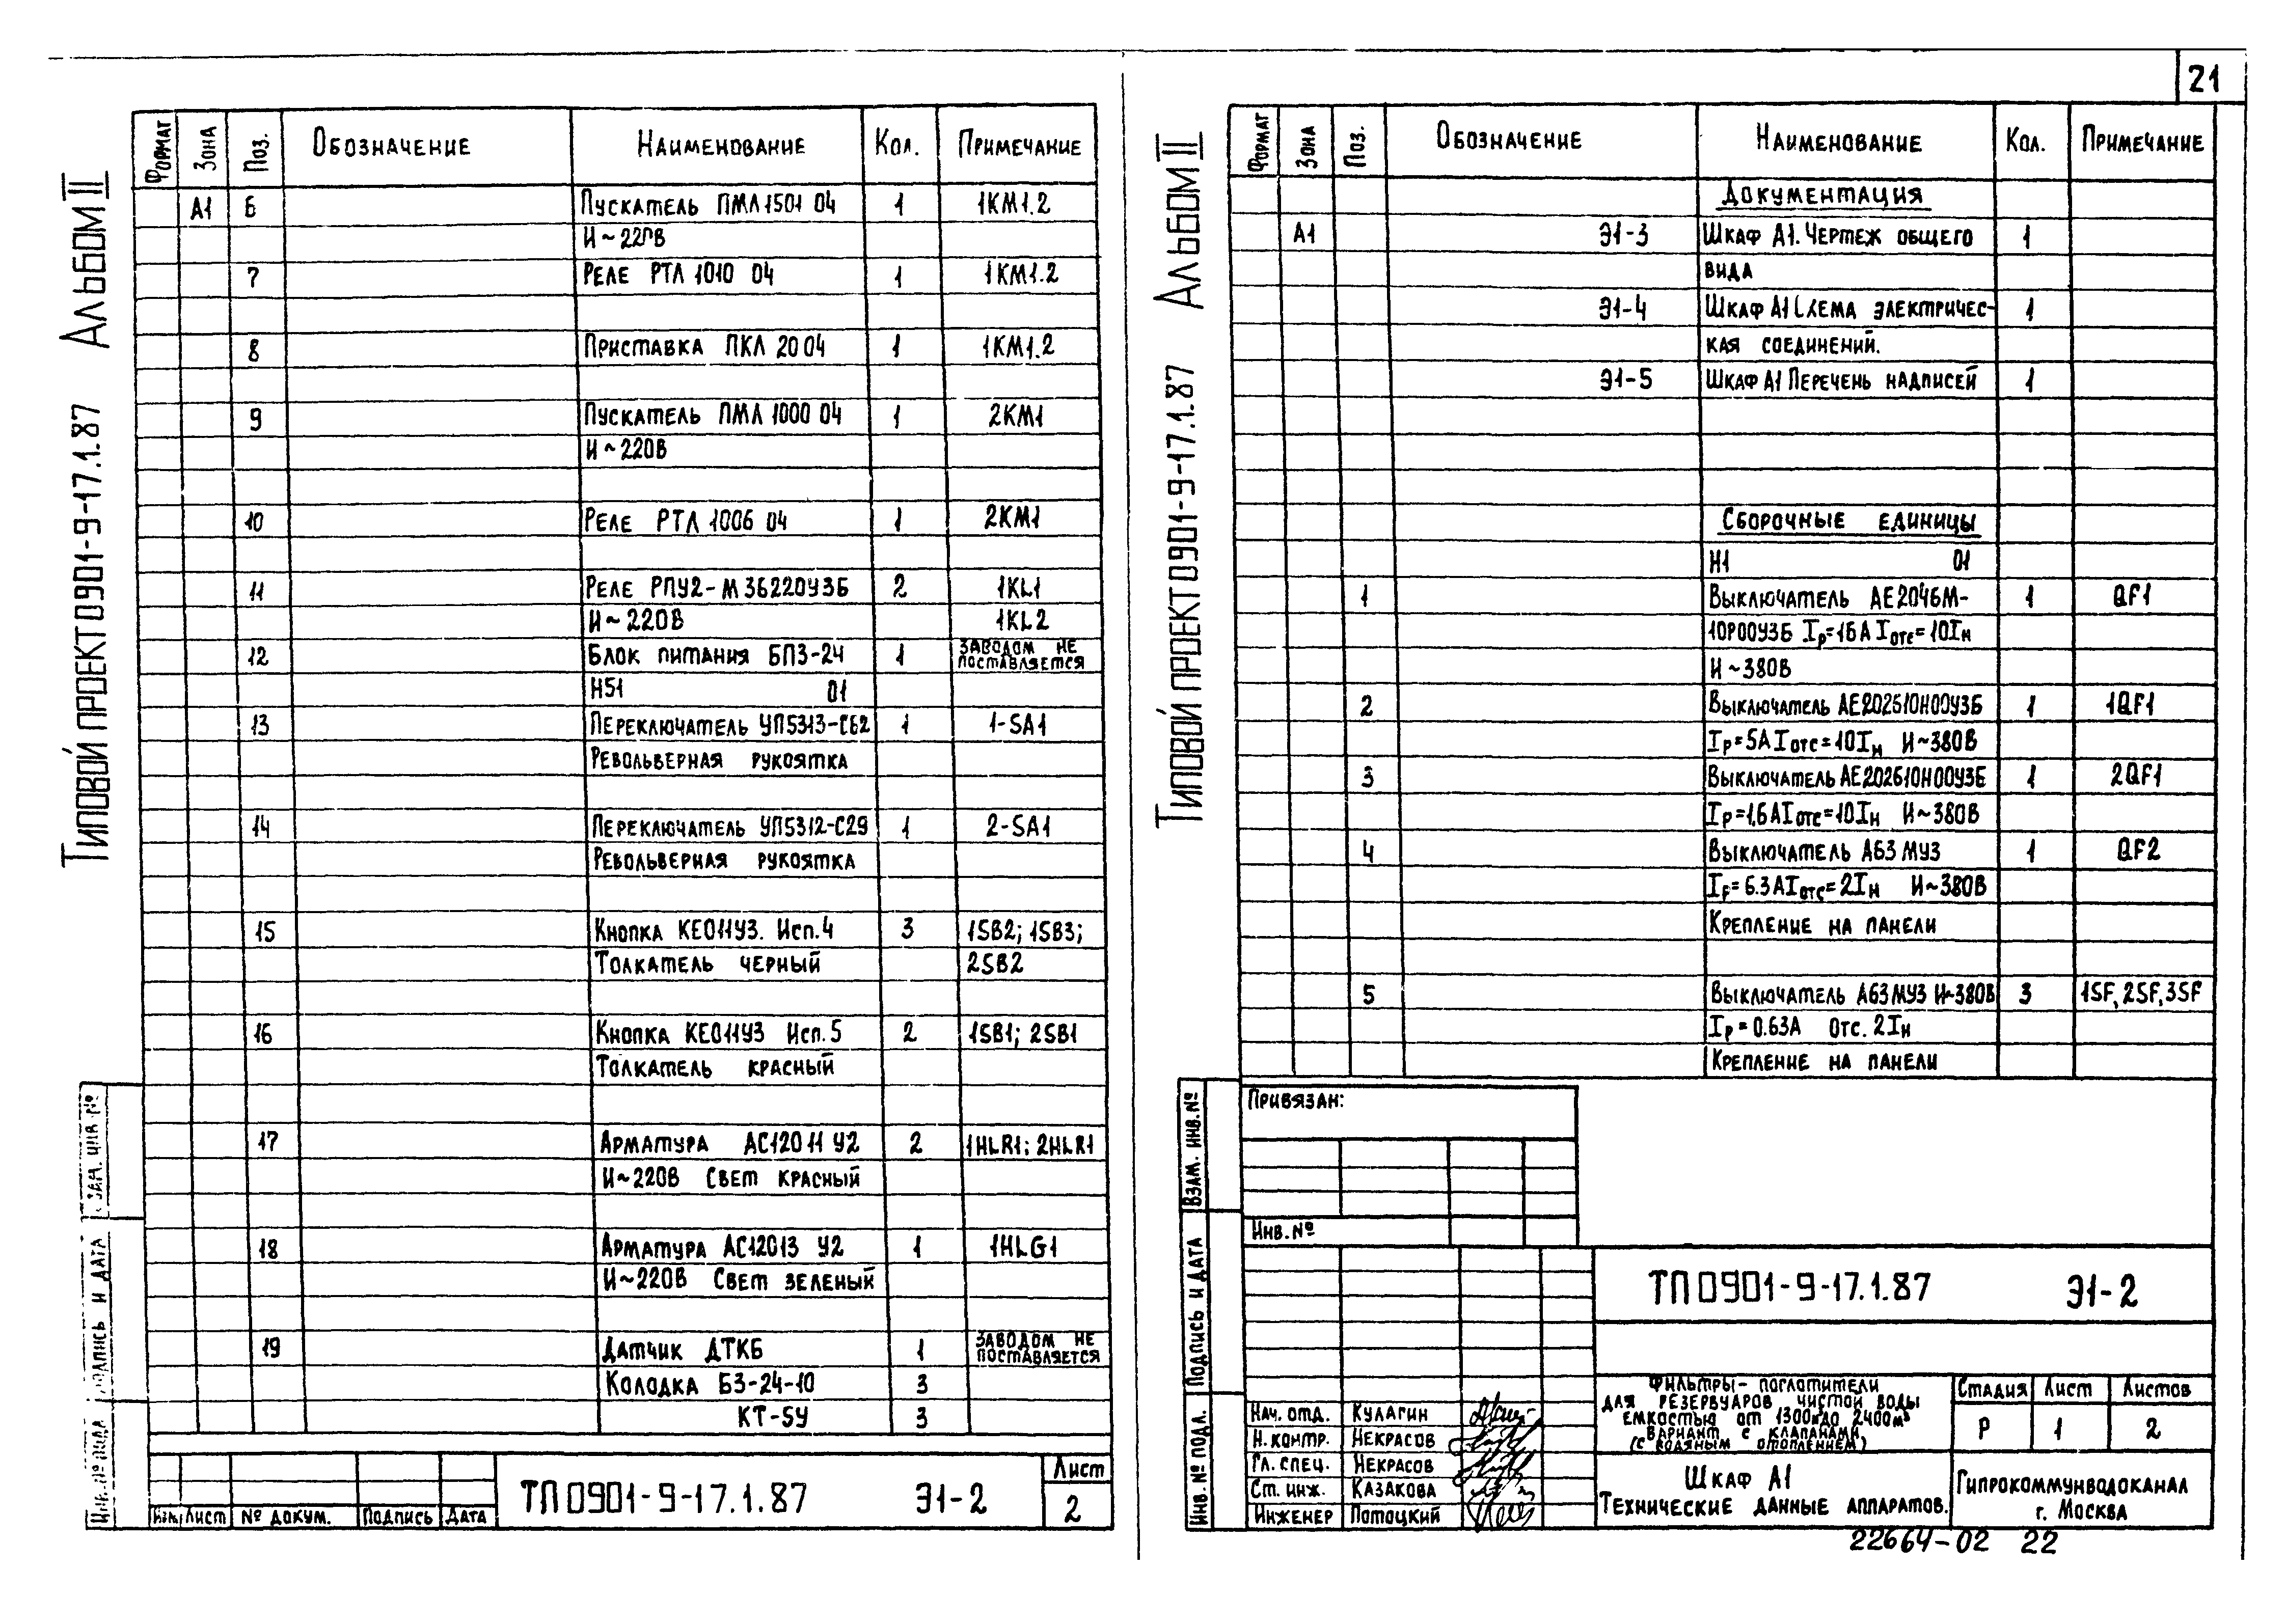 21
Типовой проект 0901-9-17.1.87 Альбом II
Формат Зона Поз. Обозначение Наименование Кол. Примечание
А1 6 Пускатель ПМЛ1501 04 1 1КМ1.2
И~220В
7 Реле РТЛ 1010 04 1 1КМ1.2
8 Приставка ПКЛ 2004 1 1КМ1.2
9 Пускатель ПМЛ 1000 04 1 2КМ1
И~220В
10 Реле РТЛ 1006 04 1 2КМ1
11 Реле РПУ2-М36220У3Б 2 1KL1
И~220В 1KL2
12 Блок питания БПЗ-24 1 заводом не
поставляется
Н51 01
13 Переключатель УП5313-С62 1 1-SA1
Револьверная рукоятка
14 Переключатель УП5312-С29 1 2-SA1
Револьверная рукоятка
15 Кнопка КЕ011У3. Исп.4 3 1SB2; 1SB3;
Толкатель черный 2SB2
16 Кнопка КЕ011У3 Исп.5 2 1SB1; 2SB1
Толкатель красный
17 Арматура АС12011 У2 2 1HLR1; 2HLR1
И~220В Свет красный
18 Арматура АС12013 У2 1 1HLG1
И~220В Свет зеленый
19 Датчик ДТКБ 1 заводом не
поставляется
Колодка БЗ-24-10 3
КТ-5У 3
Подпись и дата
Изм. Лист № докум. Подпись Дата
ТП 0901-9-17.1.87 Э1-2
Лист
2
Типовой проект 0901-9-17.1.87 Альбом II
Формат Зона Поз. Обозначение Наименование Кол. Примечание
Документация
А1 Э1-3 Шкаф А1. Чертеж общего 1
вида
Э1-4 Шкаф А1 Схема электричес- 1
кая соединений.
Э1-5 Шкаф А1 Перечень надписей 1
Сборочные единицы
Н1 01
1 Выключатель АЕ2046М- 1 QF1
10Р00У3Б Iр=16А Iотс=10Iн
И~380В
2 Выключатель АЕ202610Н00У3Б 1 1QF1
Iр=5А Iотс=10Iн И~380В
3 Выключатель АЕ202610Н00У3Б 1 2QF1
Iр=1,6А Iотс=10Iн И~380В
4 Выключатель А63 МУ3 1 QF2
Iр=6.3А Iотс=2Iн И~380В
Крепление на панели
5 Выключатель А63МУ3 И~380В 3 1SF, 2SF, 3SF
Iр=0.63А Отс. 2Iн
Крепление на панели
Привязан:
Инв.№
Взам. инв.№
Подпись и дата
Инв.№ подл.
ТП 0901-9-17.1.87 Э1-2
Нач. отд. Кулагин
Н. контр. Некрасов
Гл. спец. Некрасов
Ст. инж. Казакова
Инженер Потоцкий
Фильтры-поглотители
для резервуаров чистой воды
емкостью от 1300м³до 2400м³
Вариант с клапанами
(с водяным отоплением)
Стадия Лист Листов
Р 1 2
Шкаф А1
Технические данные аппаратов.
Гипрокоммунводоканал
г. Москва
22664-02 22